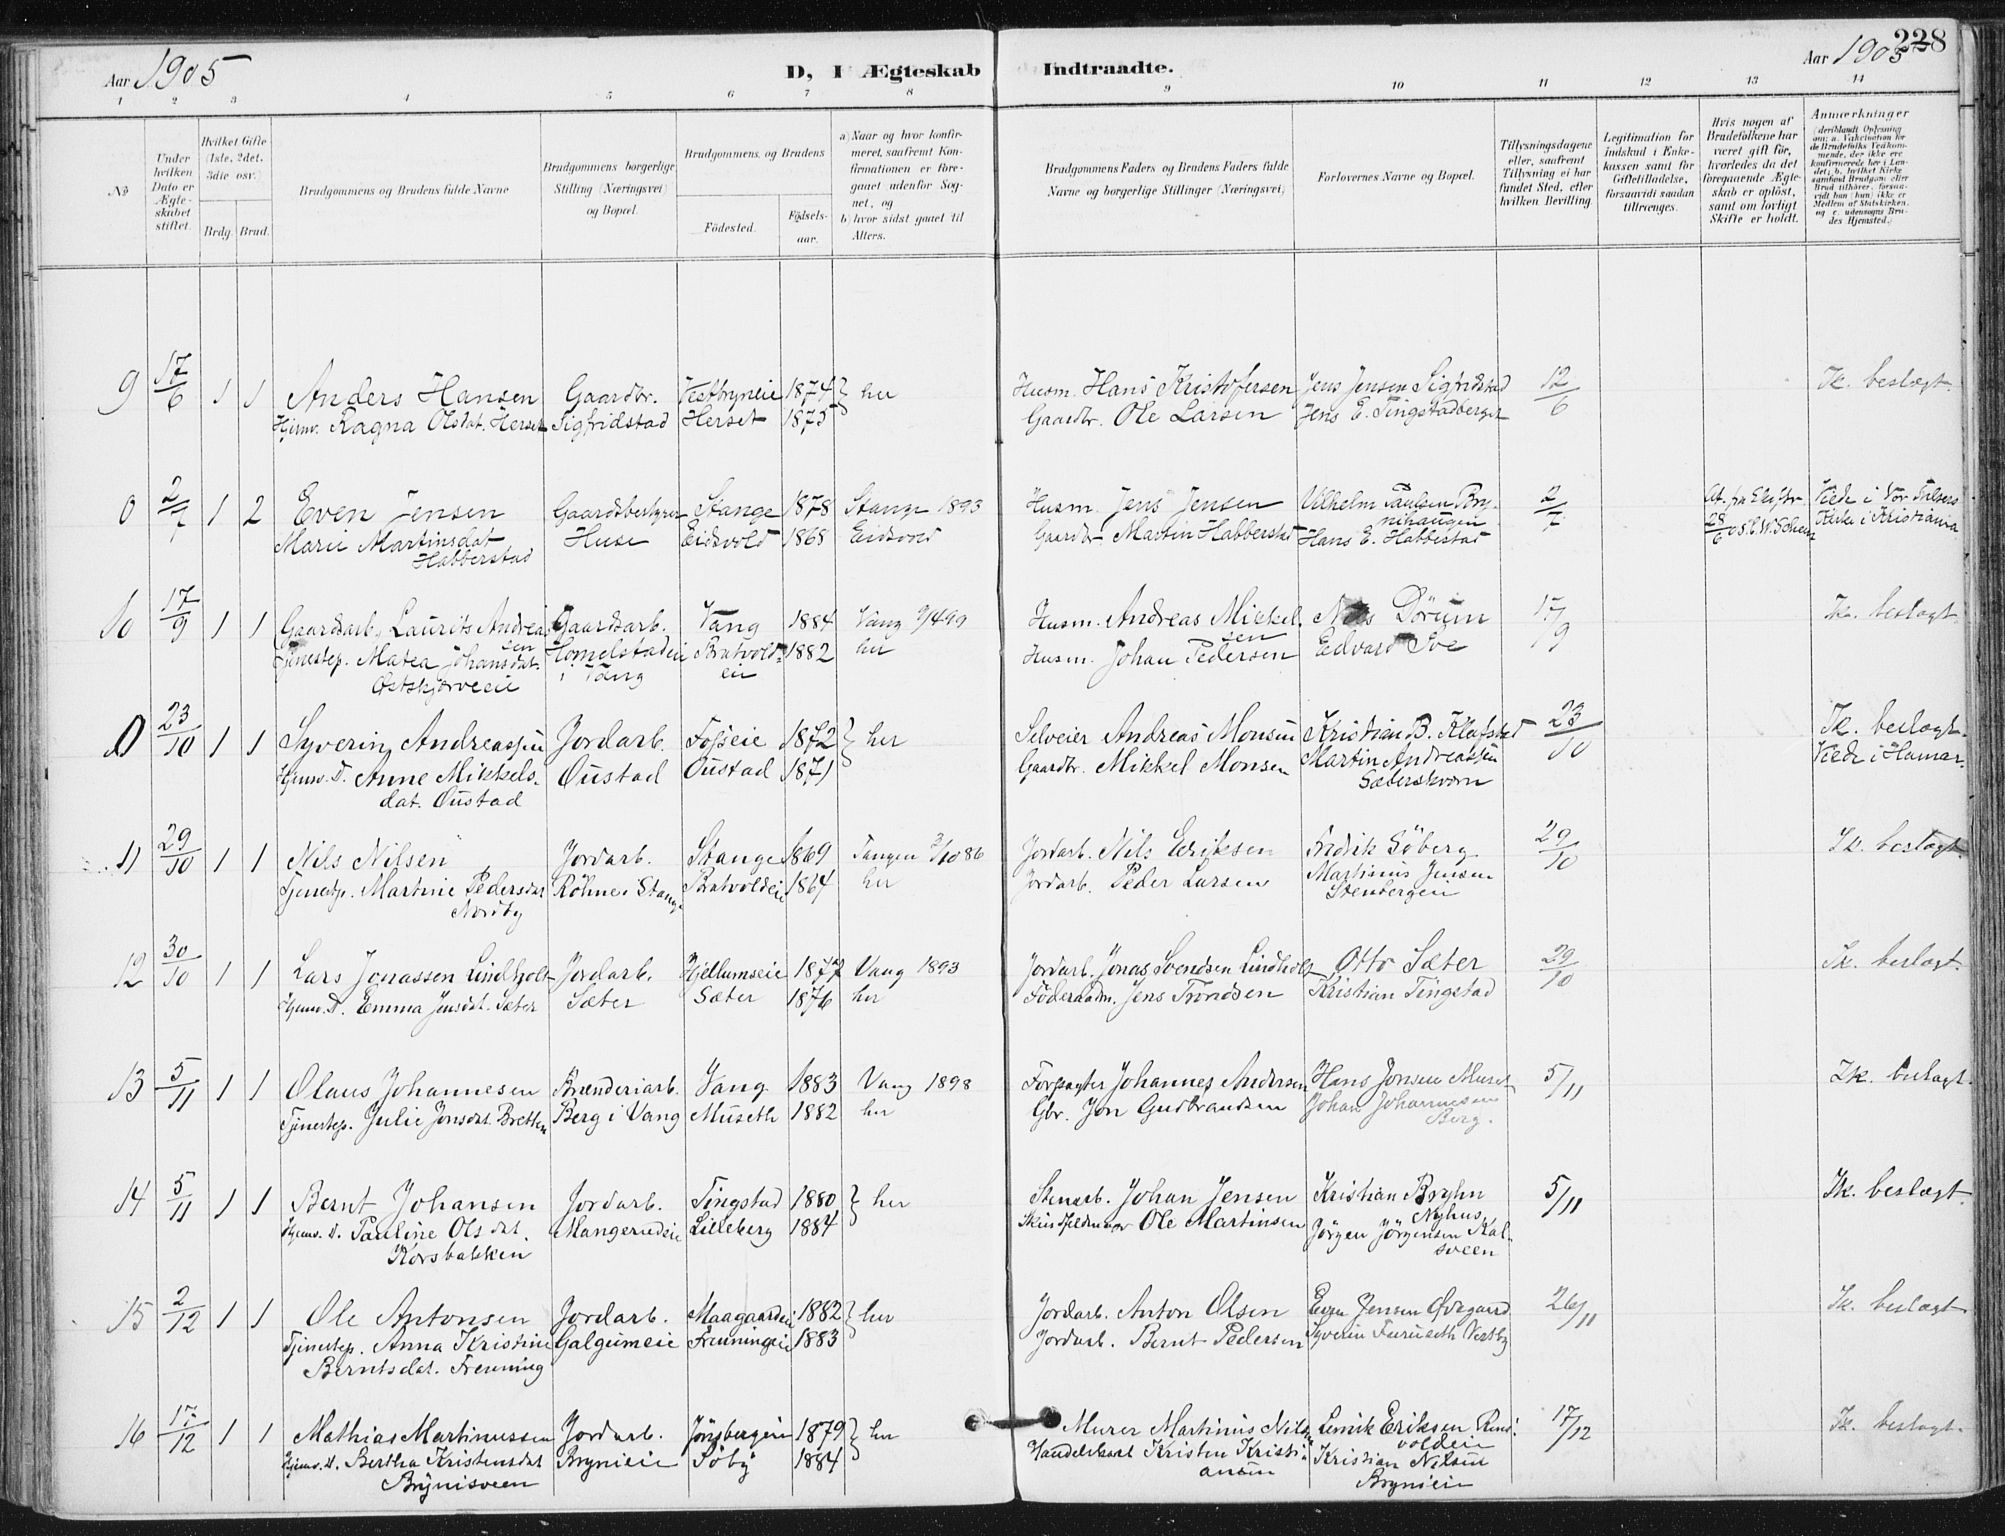 Aar 1905
D, I Ægteskab Indtraadte.
Aar 1905
228
1 2 3 4 5 6 7 8 9 10 11 12 13 14
No
Under hvilken Dato er Ægteskabet stiftet.
Hvilket Gifte (1ste, 2det. 3die osv.)
Brdg. Brud.
Brudgommens og Brudens fulde Navne
Brudgommens borgerlige Stilling (Næringsvei) og Bopæl.
Brudgommens og Brudens
Födested.
Födsels-aar.
a) Naar og hvor konfirmeret, saafremt Konfirmationen er foregaaet udenfor Sognet, og
b) hvor sidst gaaet til Alters.
Brudgommens Faders og Brudens Faders fulde Navne og borgerlige Stillinger (Næringsvei)
Forlovernes Navne og Bopæl.
Tillysningsdagene eller, saafremt Tillysning ei har fundet Sted, efter hvilken Bevilling.
Legitimation for indskud i Enkekassen samt for Giftetilladelse, forsaavidt saadan tiltrænges.
Hvis nogen af Brudefolkene har været gift før, hvorledes da det foregaaende Ægteskab er opløst, samt om lovligt Skifte er holdt.
Anmærkninger
9 17/6 1 1 Anders Hansen Gaardbr. Vestbryneie 1874 } her Husm. Hans Kristofersen Jens Jensen Sigfridstad 12/6 Ik. beslægt.
Hjemv. Ragna Olsdat. Herset Sigfridstad Herset 1875 Gaardbr. Ole Larsen Jens E. Tingstadberget
0 2/7 1 2 Even Jensen Gaardsbestyrer Stange 1878 Stange 1893 Husm. Jens Jensen Vilhelm Paulsen Bry- 2/7 Viede i Vor Frelsers
Marie Martinsdat Huse Eidsvold 1868 Eidsvold Gaardbr Martin Habberstad Hans E. Habbestad 28/6 Kirke i Kristiania
Habberstad
10 17/9 1 1 Gaardsarb. Laurits Andrea Gaardsarb. Vang 1884 Vang Husm. Andreas Mikkel. Dörum 17/9 Ik. beslægt
sen
Tjenestep. Matea Johansdat. Homelstadeie Bratvold- 1882 her Husm. Johan Pedersen Edvard
Østskjørveeie i Vang eie
23/10 1 1 Syverin Andreassen Jordarb. Fosseie 1872 } her Selveier Andreas Monsen Kristian B. Klafstad 23/10 Ik. beslægt.
Hjemv. D. Anne Mikkels- Oustad Oustad 1871 Gaardbr. Mikkel Monsen Martin Andreassen Viede i Hamar.
dat. Oustad Sæterskvern
11 29/10 1 1 Nils Nilsen Jordarb. Stange 1869 Tangen 3/10 86 Jordarb. Nils Eriksen Fredrik Söberg 29/10 Ik. beslægt
Tjenestep. Martine Pedersdat Röhne i Stange Bratvoldeie 1864 her Jordarb. Peder Larsen Martinius Jensen
Nordby Stenbergeie
12 30/10 1 1 Lars Jonassen Lindholt Jordarb. Hjellumseie 1877 Vang 1893 Jordarb. Jonas Svendsen Lindholt Otto Sæter 29/10 Ik. beslægt.
Hjemv. D. Emma Jensdat. Sæter Sæter Sæter 1876 her Föderaadm. Jens Trondsen Kristian Tingstad
13 5/11 1 1 Olaus Johannesen Brænderiarb. Vang 1883 Vang 1898 Forpagter Johannes Andersen Hans Jonsen Muset 5/11 Ik. beslægt.
Tjenestep. Julie Jonsdat. Berg i Vang Museth 1882 her Gbr. Jon Gudbrandsen Johan Johannesen
Berg.
14 5/11 1 1 Bernt Johansen Jordarb. Tingstad 1880 } her Stenarb. Johan Jensen Kristian Bryhn 5/11 Ik. beslægt.
Nyhus
Hjemv. D. Pauline Olsdat. Mangerudeie Lilleberg 1884 Ole Martinsen Jörgen Jörgensen Kal-
Korsbakken sveen
15 2/12 1 1 Ole Antonsen Jordarb. Maagaardeie 1882 } her Jordarb. Anton Olsen Even Jensen Øvegaard 26/11 Ik. beslægt
Tjenestep. Anna Kristine Galgumeie Frenningeie 1883 Jordarb. Bernt Pedersen Syverin Furuseth Vestby
Berntsdat. Frenning
16 17/12 1 1 Mathias Martinussen Jordarb. Jönsbergeie 1879 } her Murer Martinus Nilsen Lenik Eriksen 17/12 Ik. beslægt.
voldeie
Hjemv. D. Bertha Kristensdat Brynieie Söby 1884 Kristen Kristi- Kristian Nilsen
Brynisveen ansen Brynieie